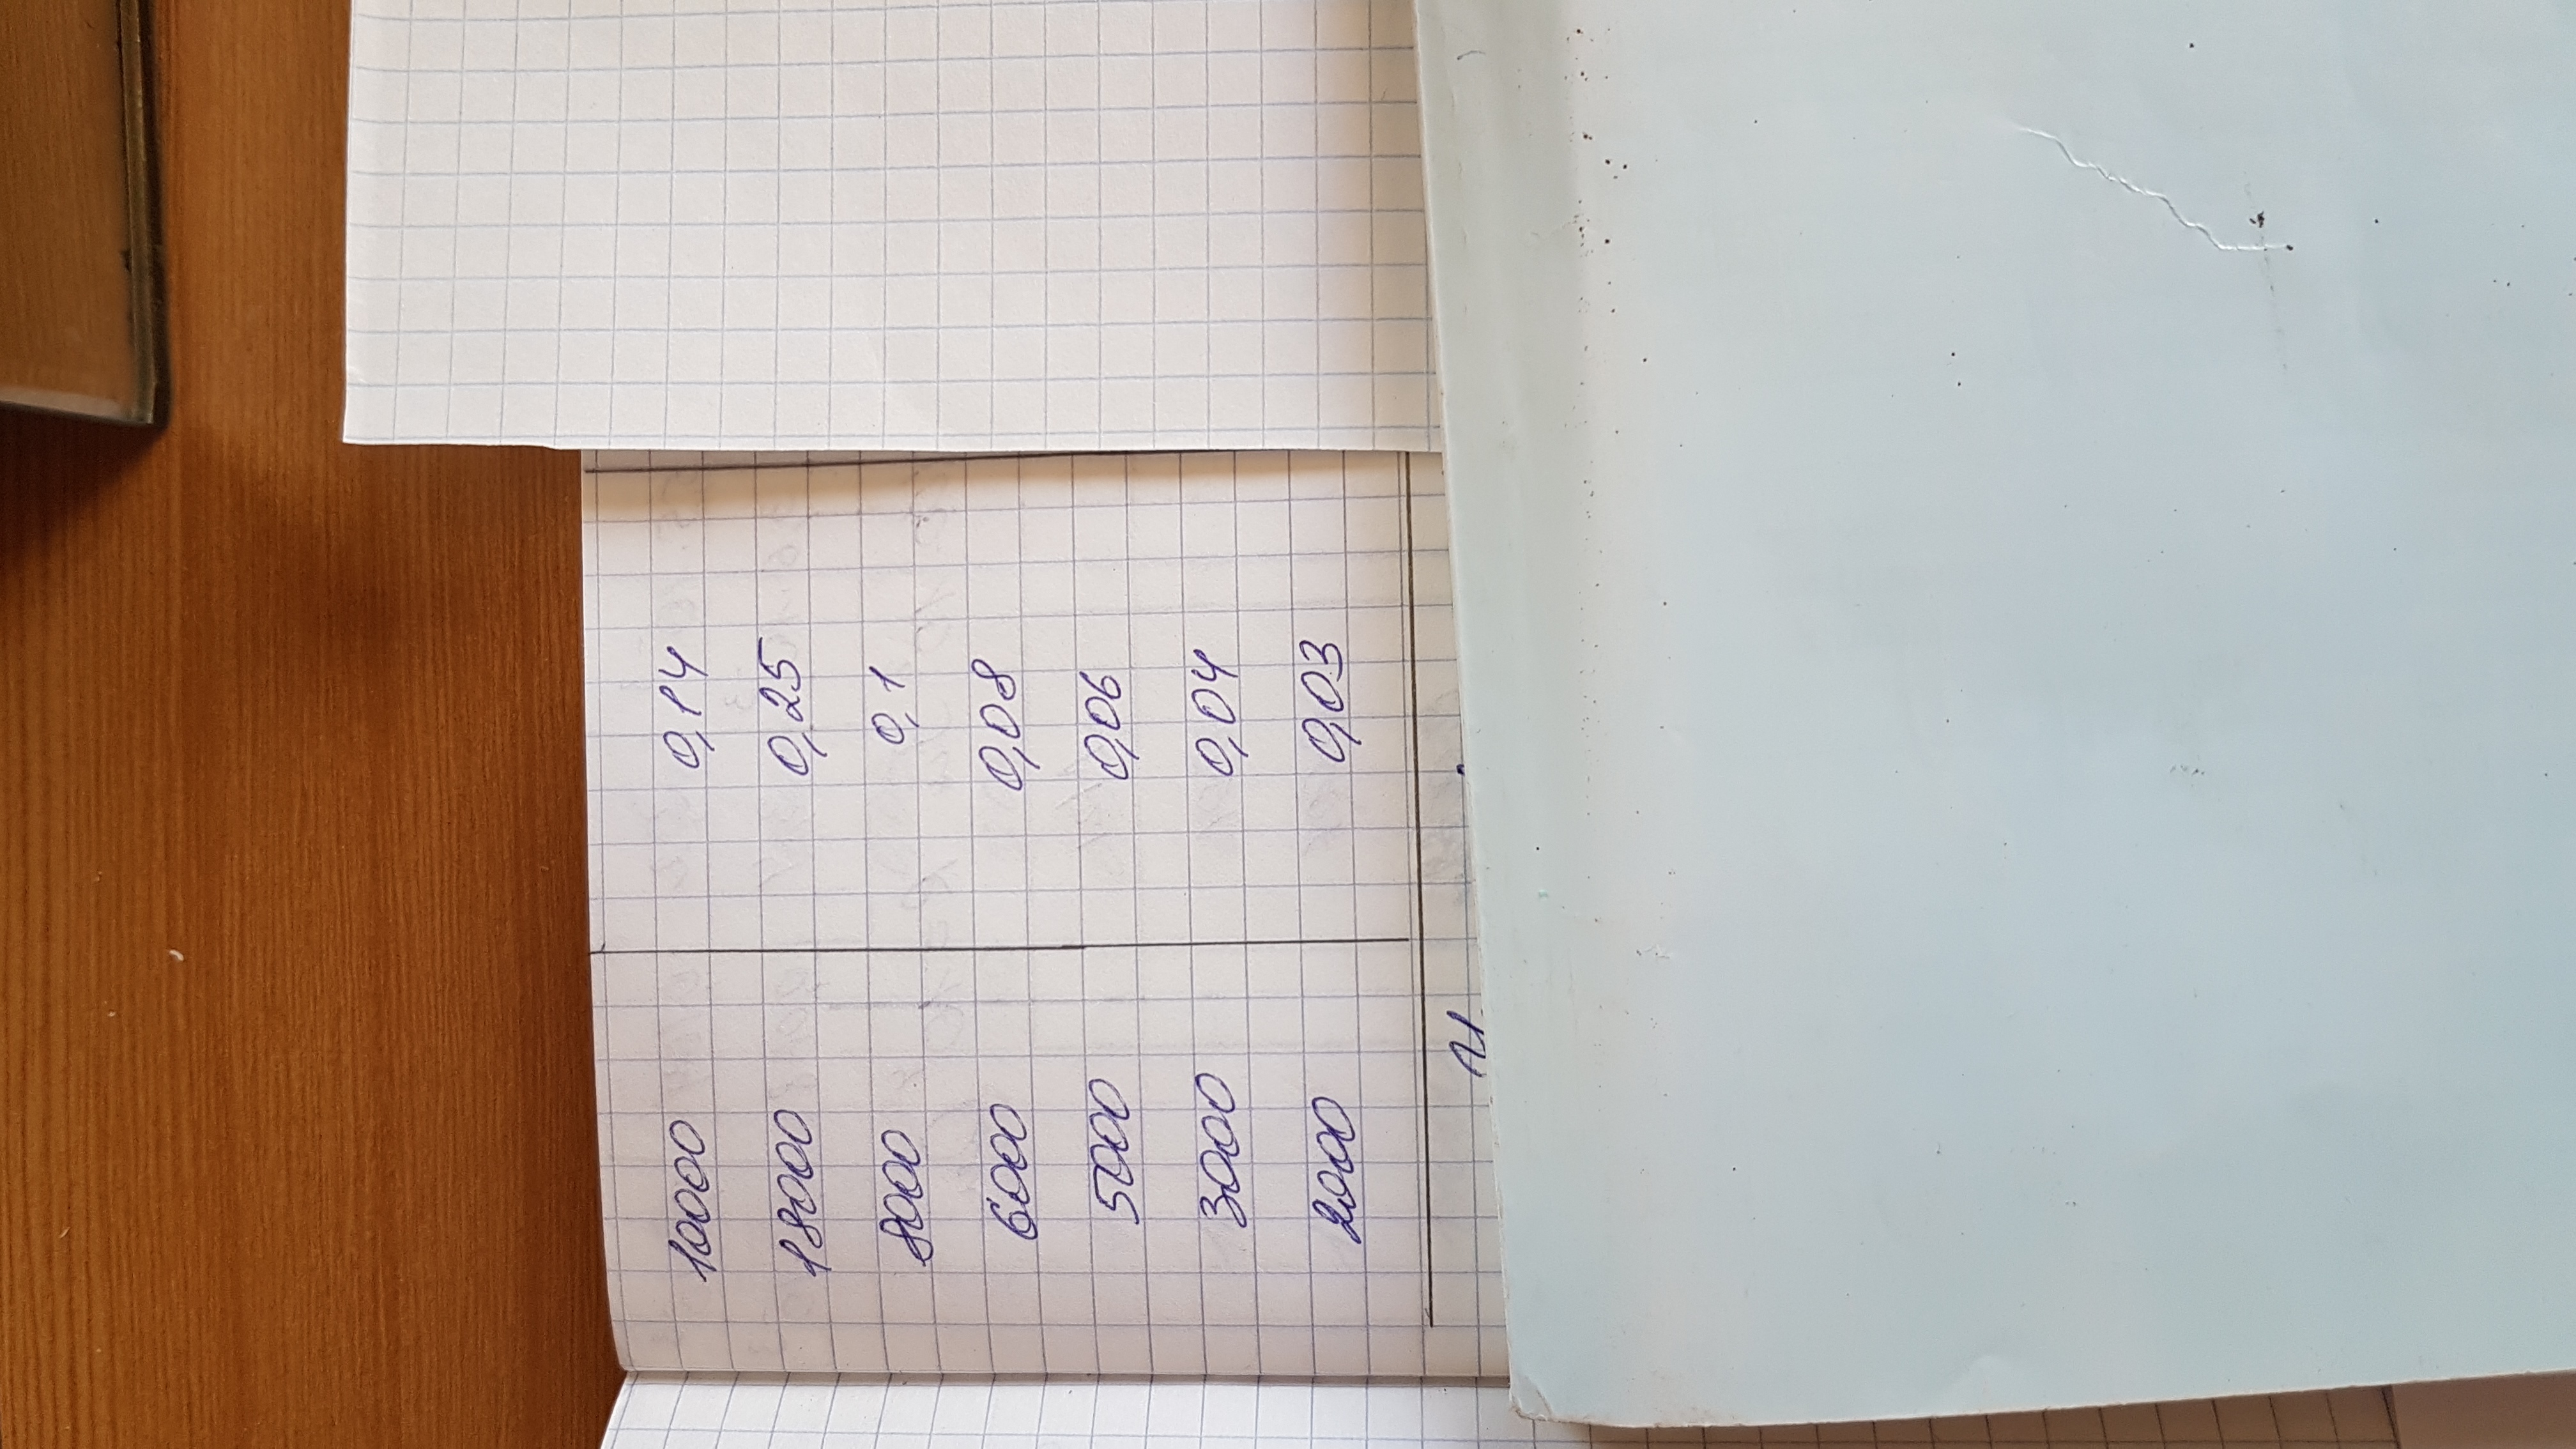 10000 0,14
18000 0,25
8000 0,1
6000 0,08
5000 0,06
3000 0,04
2000 0,03